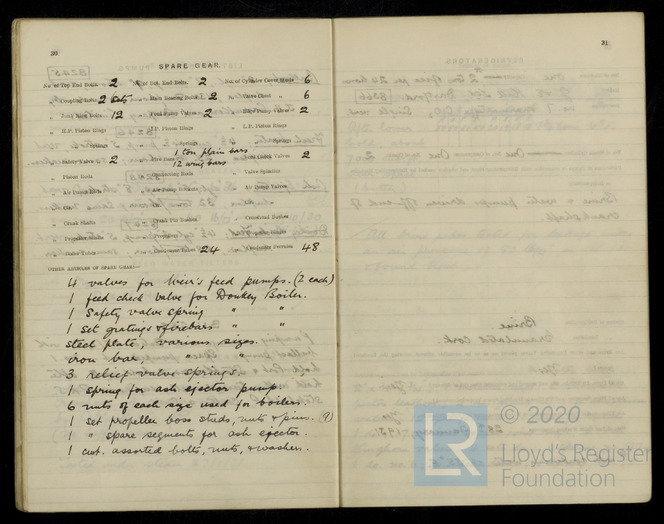 30
SPARE GEAR.
No. of Top End Bolts 2 No. of Bot. End Bolts 2 No. of Cylinder Cover Studs 6
" Coupling Bolts 2 sets " Main Bearing Bolts 2 " Valve Chest " 6
" Junk Ring Bolts 12 " Feed Pump Valves 2 " Bilge Pump Valves 2
" H.P. Piston Rings " I.P. Piston Rings " L.P. Piston Rings
" " Springs " " Springs " " Springs
" Safety Valve " 2 " Fire Bars 1 ton plain bars " Feed Check Valves 2
12 wing bars
" Piston Rods " Connecting Rods " Valve Spindles
" Air Pump Rods " Air Pump Buckets " Air Pump Valves
" Cir. " " Cir. " " Cir. "
" Crank Shafts " Crank Pin Bushes " Crosshead Bushes
" Propeller Shafts " Propellers " Propeller Blades
" Boiler Tubes " Condenser Tubes 24 " Condenser Ferrules 48
OTHER ARTICLES OF SPARE GEAR:—
4 valves for Weir's feed pumps. (2 each)
1 feed check valve for Donkey Boiler.
1 Safety valve spring " "
1 set gratings & firebars " "
steel plate, various sizes.
iron bar, " "
3 relief valve springs.
1 spring for ash ejector pump.
6 nuts of each size used for boilers.
1 set propeller boss studs, nuts & pins. (9)
1 " spare segments for ash ejector.
1 cwt. assorted bolts, nuts, & washers.
31
LR
© 2020
Lloyd's Register
Foundation